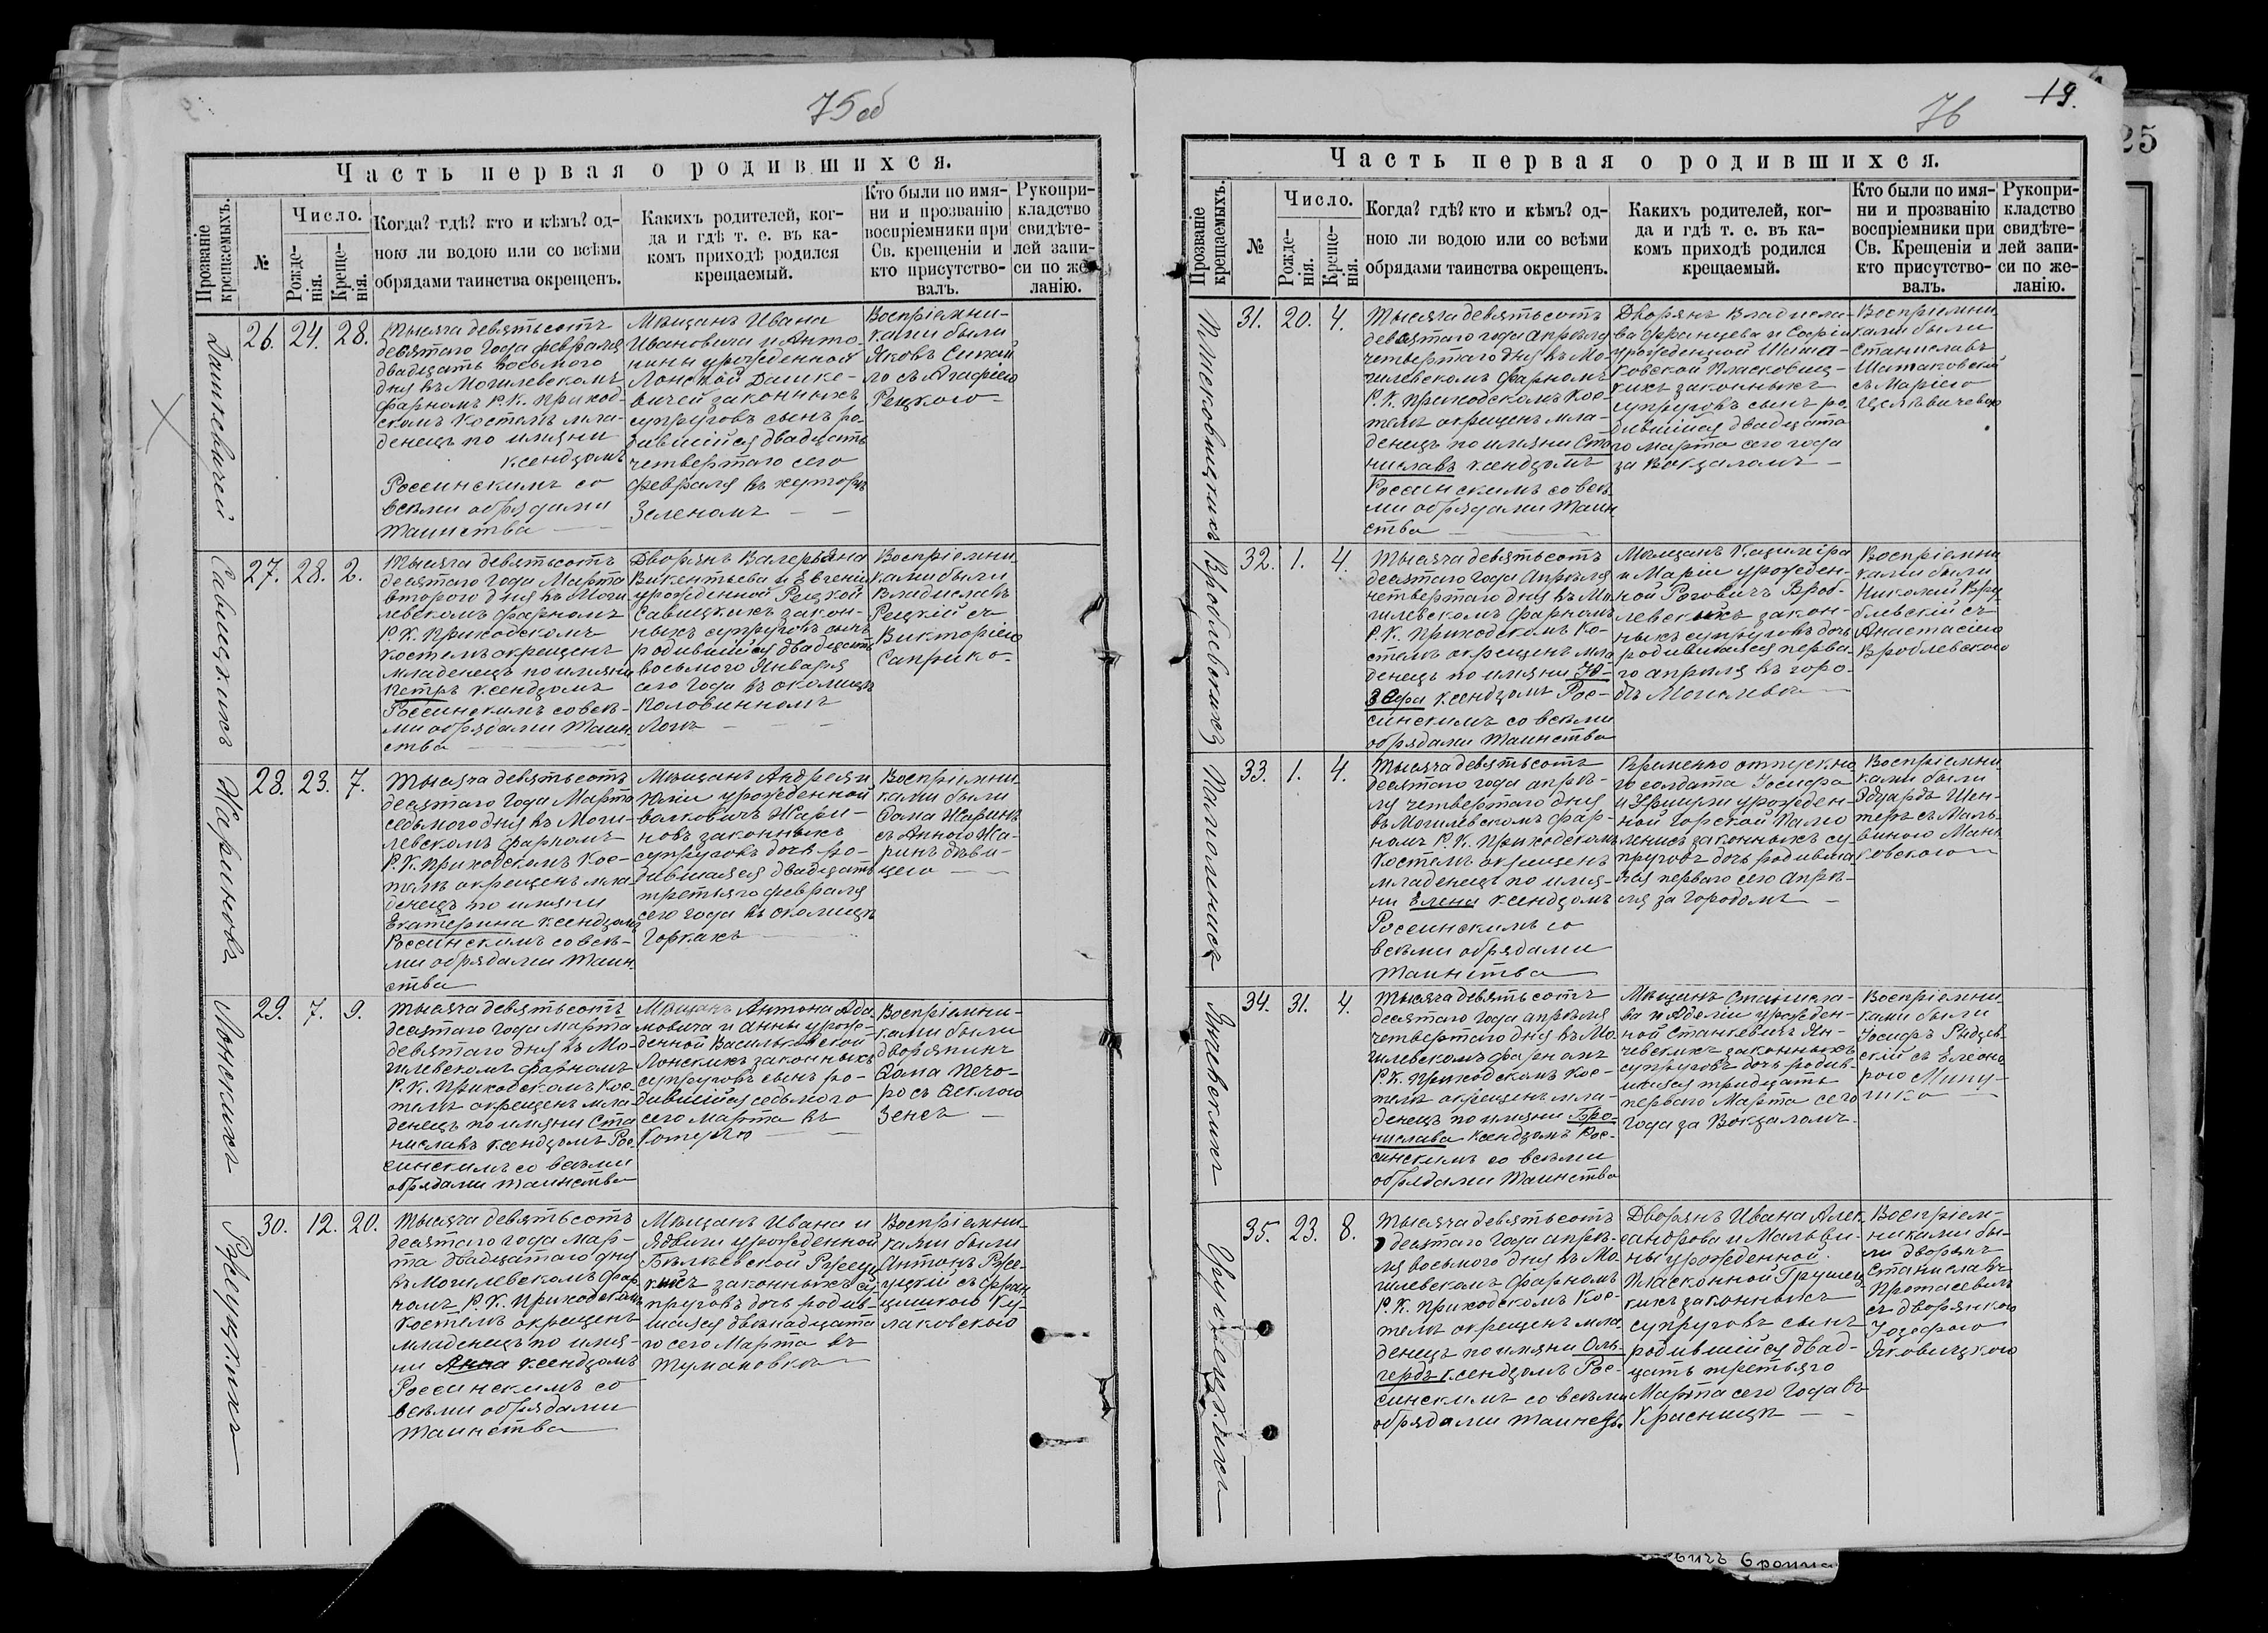 75 об
Часть первая о родившихся.
Прозваніе крещаемыхъ.
№
Число.
Рожде-
нія.
Креще-
нія.
Когда? гдѣ? кто и кѣмъ? од-
ною ли водою или со всѣми
обрядами таинства окрещенъ.
Какихъ родителей, ког-
да и гдѣ т. е. въ ка-
комъ приходѣ родился
крещаемый.
Кто были по имя-
ни и прозванію
воспріемники при
Св. крещеніи и
кто присутство-
валъ.
Рукопри-
кладство
свидѣте-
лей запи-
си по же-
ланію.
Дашкевичей
26. 24. 28.
Тысяча девятьсотъ
девятаго года февраля
двадцать восьмого
дня въ Могилевскомъ
фарномъ Р.К. приход-
скомъ костелѣ мла-
денецъ по имяни
ксендзомъ
Россинскимъ со
всѣми обрядами
таинства
Мѣщанъ Ивана
Ивановича и Анто-
нины урожденной
Лонской Дашке-
вичей законныхъ
супруговъ сынъ ро-
дившійся двадцать
четвертаго сего
февраля въ хуторѣ
Зеленомъ
Воспріемни-
ками были
Яковъ
съ Агафіею
Рецкого
Савицкихъ
27. 28. 2.
Тысяча девятьсотъ
десятаго года Марта
второго дня въ Моги
левскомъ фарномъ
Р.К. приходскомъ
костелѣ окрещенъ
младенецъ по имяни
Петръ ксендзомъ
Россинскимъ со всѣ-
ми обрядами таин
ства
Дворянъ Валерьяна
Викентьева и Евгеніи
урожденной Рецкой
Савицкихъ закон-
ныхъ супруговъ сынъ
родившійся двадцать
восьмого Января
сего года въ околицѣ
Половинномъ
Логѣ
Воспріемни
ками были
Владиславъ
Рецкій съ
Викторіею
Саприко-
Жариновъ
28. 23. 7.
Тысяча девятьсотъ
десятаго года Марта
седьмого дня въ Моги-
левскомъ фарномъ
Р.К. приходскомъ кос-
телѣ окрещенъ мла-
денецъ по имяни
Екатерина ксендзомъ
Россинскимъ со всѣ-
ми обрядами таин
ства
Мѣщанъ Андрея и
Юліи урожденной
Волковичъ Жари-
новъ законныхъ
супруговъ дочь ро-
дившаяся двадцать
третьяго февраля
сего года въ околицѣ
Горкахъ
Воспріемни
ками были
Ѳома Жаринъ
съ Анною Жа-
ринъ дѣви-
цею
Лонскихъ
29. 7. 9.
Тысяча девятьсотъ
десятаго года Марта
девятаго дня въ Мо-
гилевскомъ фарномъ
Р.К. приходскомъ кос-
телѣ окрещенъ мла-
денецъ по имяни Ста
ниславъ ксендзомъ Рос
синскимъ со всѣми
обрядами таинства
Мѣщанъ Антона Ада-
мовича и Анны урож-
денной Васильковской
Лонскихъ законныхъ
супруговъ сынъ ро-
дившійся седьмого
сего Марта въ
Воспріемни-
ками были
дворянинъ
Ѳома Печо-
ро съ Ѳеклою
Зенсъ
Ржеуцкихъ
30. 12. 20.
Тысяча девятьсотъ
десятаго года Мар-
та двадцатаго дня
въ Могилевскомъ фар
номъ Р.К. приходскомъ
костелѣ окрещенъ
младенецъ по имя-
ни Анна ксендзомъ
Россинскимъ со
всѣми обрядами
таинства
Мѣщанъ Ивана и
Ядвиги урожденной
Бѣлѣевской Ржеуц
кихъ законныхъ су-
пруговъ дочь родив-
шаяся двѣнадцата
го сего Марта въ
Тумановкѣ
Воспріемни
ками были
Антонъ Рже-
уцкій съ Фран
цишкою Ку-
лаковскою
76
19.
25
Часть первая о родившихся.
Прозваніе крещаемыхъ.
№
Число.
Рожде-
нія.
Креще-
нія.
Когда? гдѣ? кто и кѣмъ? од-
ною ли водою или со всѣми
обрядами таинства окрещенъ.
Какихъ родителей, ког-
да и гдѣ т. е. въ ка-
комъ приходѣ родился
крещаемый.
Кто были по имя-
ни и прозванію
воспріемники при
Св. Крещеніи и
кто присутство-
валъ.
Рукопри-
кладство
свидѣте-
лей запи-
си по же-
ланію.
Плясковицкихъ
31. 20. 4.
Тысяча девятьсотъ
девятаго года апрѣля
четвертаго дня въ Мо-
гилевскомъ фарномъ
Р.К. приходскомъ кос-
телѣ окрещенъ мла-
денецъ по имяни Ста
ниславъ ксендзомъ
Россинскимъ со всѣ
ми обрядами таин
ства
Дворянъ Владисла-
ва Францева и Софіи
урожденной Шата-
ковской Плясковиц-
кихъ законныхъ
супруговъ сынъ ро-
дившійся двадцата
го марта сего года
за Вокзаломъ
Воспріемни
ками были
Станиславъ
Шатаковскій
съ Маріею
Вроблевскихъ
32. 1. 4.
Тысяча девятьсотъ
десятаго года апрѣля
четвертаго дня въ Мо
гилевскомъ фарномъ
Р.К. приходскомъ ко-
стелѣ окрещенъ мла
денецъ по имяни Ю-
зефа ксендзомъ Рос-
синскимъ со всѣми
обрядами таинства
Мѣщанъ Казиміра
и Маріи урожден-
ной Роговичъ Вроб-
левскихъ закон-
ныхъ супруговъ дочь
родившаяся перва-
го апрѣля въ горо-
дѣ Могилевѣ
Воспріемни
ками были
Николай Вру
блевскій съ
Анастасіею
Вроблевскою
33. 1. 4.
Тысяча девятьсотъ
десятаго года апрѣ-
ля четвертаго дня
въ Могилевскомъ фар-
номъ Р.К. приходскомъ
костелѣ окрещенъ
младенецъ по имя-
ни Елена ксендзомъ
Россинскимъ со
всѣми обрядами
таинства
Временно отпускно
го солдата Іосифа
и Уршули урожден-
ной Горской
законныхъ су-
пруговъ дочь родивша
яся перваго сего апрѣ-
ля за городомъ
Воспріемни
ками были
Эдуардъ Шен-
теръ съ Маль-
виною Мань
ковскою
Янчевскихъ
34. 31. 4.
Тысяча девятьсотъ
десятаго года апрѣля
четвертаго дня въ Мо-
гилевскомъ фарномъ
Р.К. приходскомъ кос-
телѣ окрещенъ мла-
денецъ по имяни Бро-
нислава ксендзомъ Рос-
синскимъ со всѣми
обрядами таинства
Мѣщанъ Станисла-
ва и Адели урожден-
ной Станкевичъ Ян-
чевскихъ законныхъ
супруговъ дочь родив-
шаяся тридцать
перваго Марта сего
года за Вокзаломъ.
Воспріемни
ками были
Іосифъ Рыдзев-
скій съ Елеоно
рою
Грушецкихъ
35. 23. 8.
Тысяча девятьсотъ
десятаго года апрѣ-
ля восьмого дня въ Мо-
гилевскомъ фарномъ
Р.К. приходскомъ кос-
телѣ окрещенъ мла-
денецъ по имяни Оль-
гердъ ксендзомъ Рос-
синскимъ со всѣми
обрядами таинства
Дворянъ Ивана Алек
сандрова и Мальви-
ны урожденной
Грушец
кихъ законныхъ
супруговъ сынъ
родившійся двад-
цать третьяго
Марта сего года въ
Красницѣ
Воспріем-
никами бы-
ли дворянъ
Станиславъ
Протасевичъ
съ дворянкою
Іозефою
Яковицкою